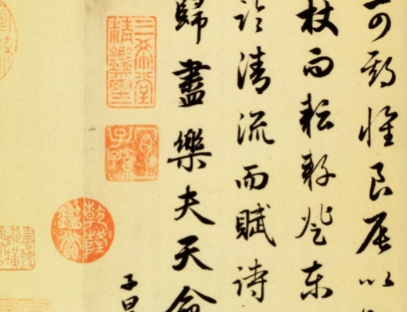 可期懷良辰以
杖而耘耔登東
臨清流而賦詩
歸盡樂夫天命
子昂
三希堂精鑑璽
乾隆鑑賞